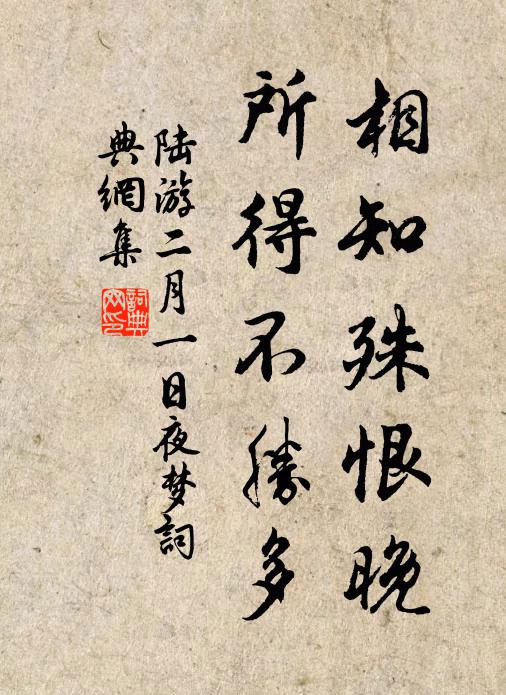 相知殊恨晚
所得不勝多
陆游二月一日夜梦詞
典網集
詞典
网印